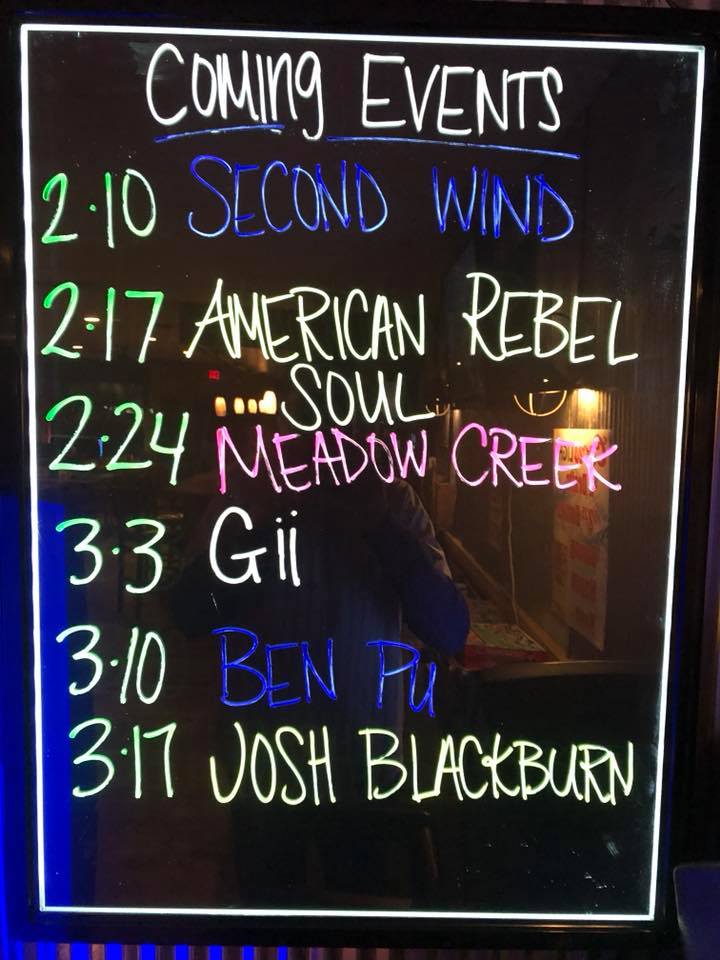 COMING EVENTS
2.10 SECOND WIND
2.17 AMERICAN REBEL
SOUL
2.24 MEADOW CREEK
3.3 Gii
3.10 BEN PU
3.17 JOSH BLACKBURN